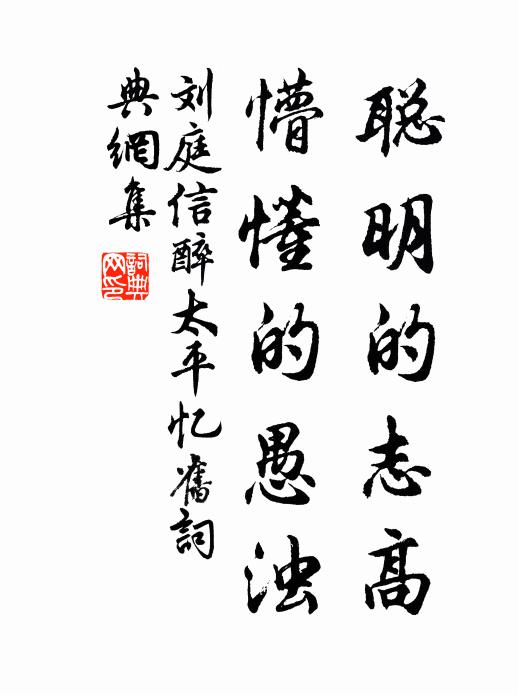 聪明的志高
懵懂的愚浊
刘庭信醉太平忆旧詞
典網集
詞典网印